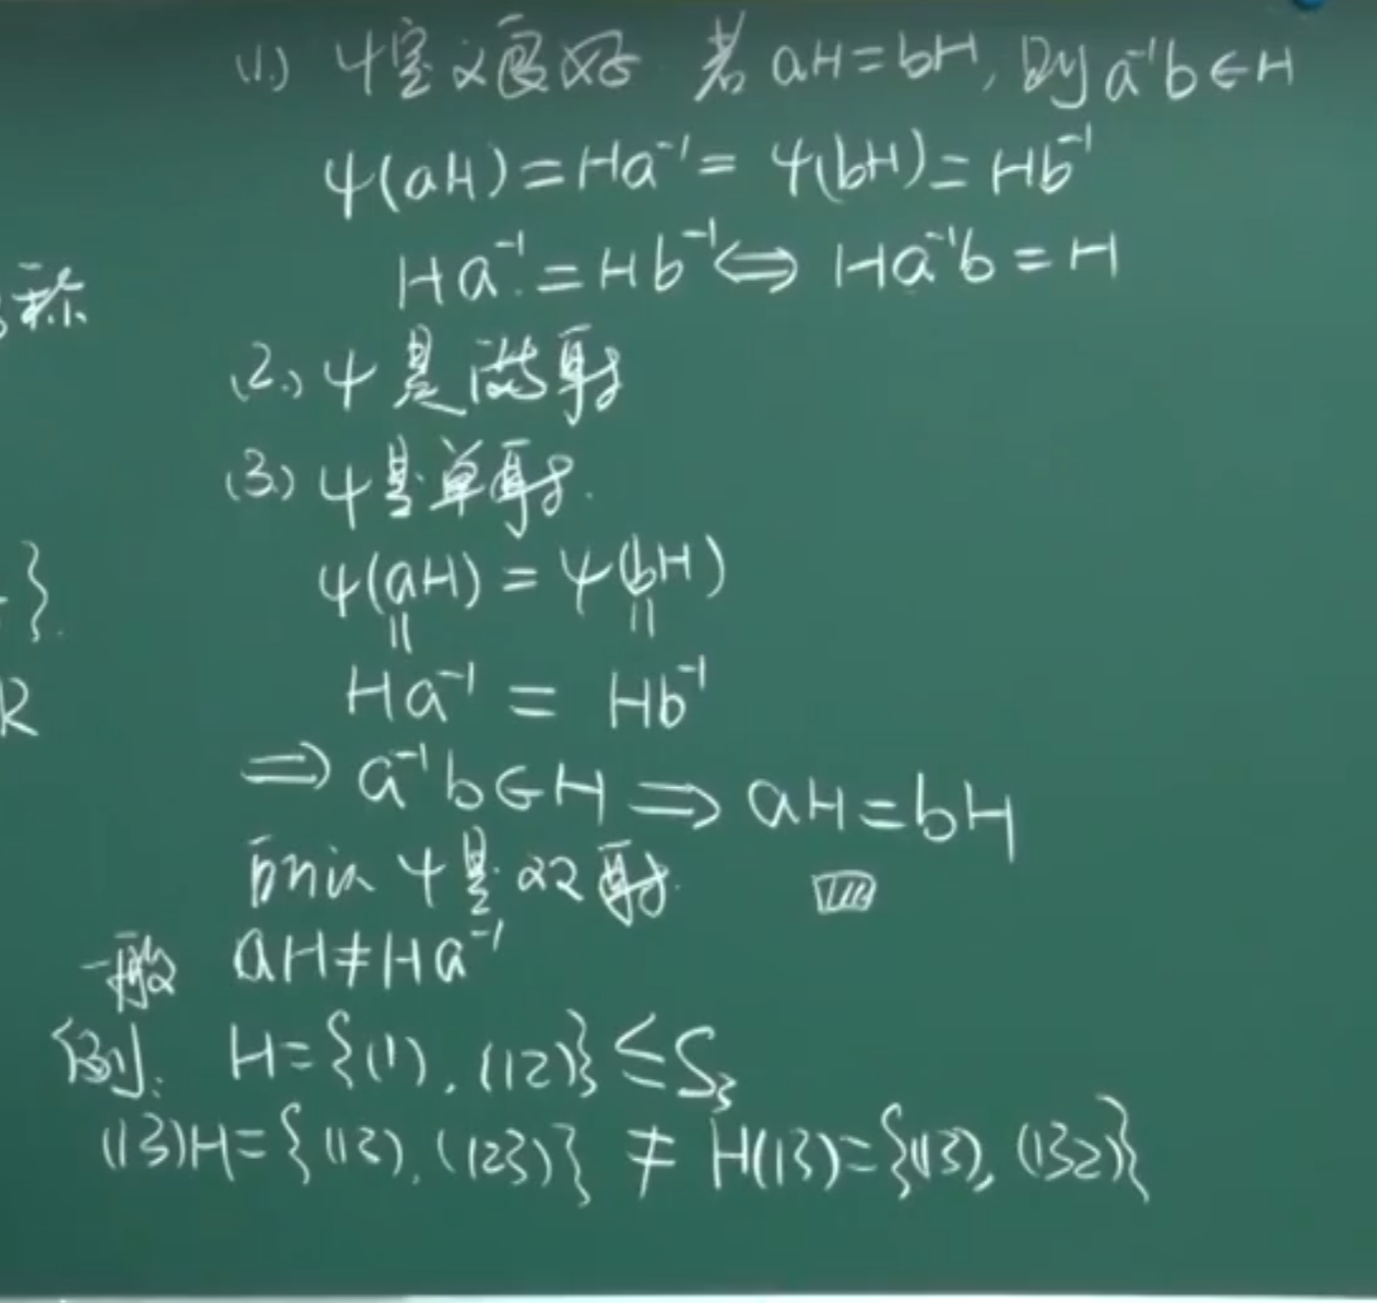 (1.) ψ定义良好 若 aH=bH, 则 a⁻¹b∈H
ψ(aH)=Ha⁻¹= ψ(bH)=Hb⁻¹
Ha⁻¹=Hb⁻¹⇔ Ha⁻¹b=H
称
(2.) ψ是满射
(3.) ψ是单射.
}.
ψ(aH) = ψ(bH)
|| ||
Ha⁻¹ = Hb⁻¹
⇒ a⁻¹b∈H ⇒ aH=bH
所以 ψ是双射.
一般 aH≠Ha⁻¹
例: H={(1), (12)}≤S₃
(13)H={(13), (123)} ≠ H(13)={(13), (132)}